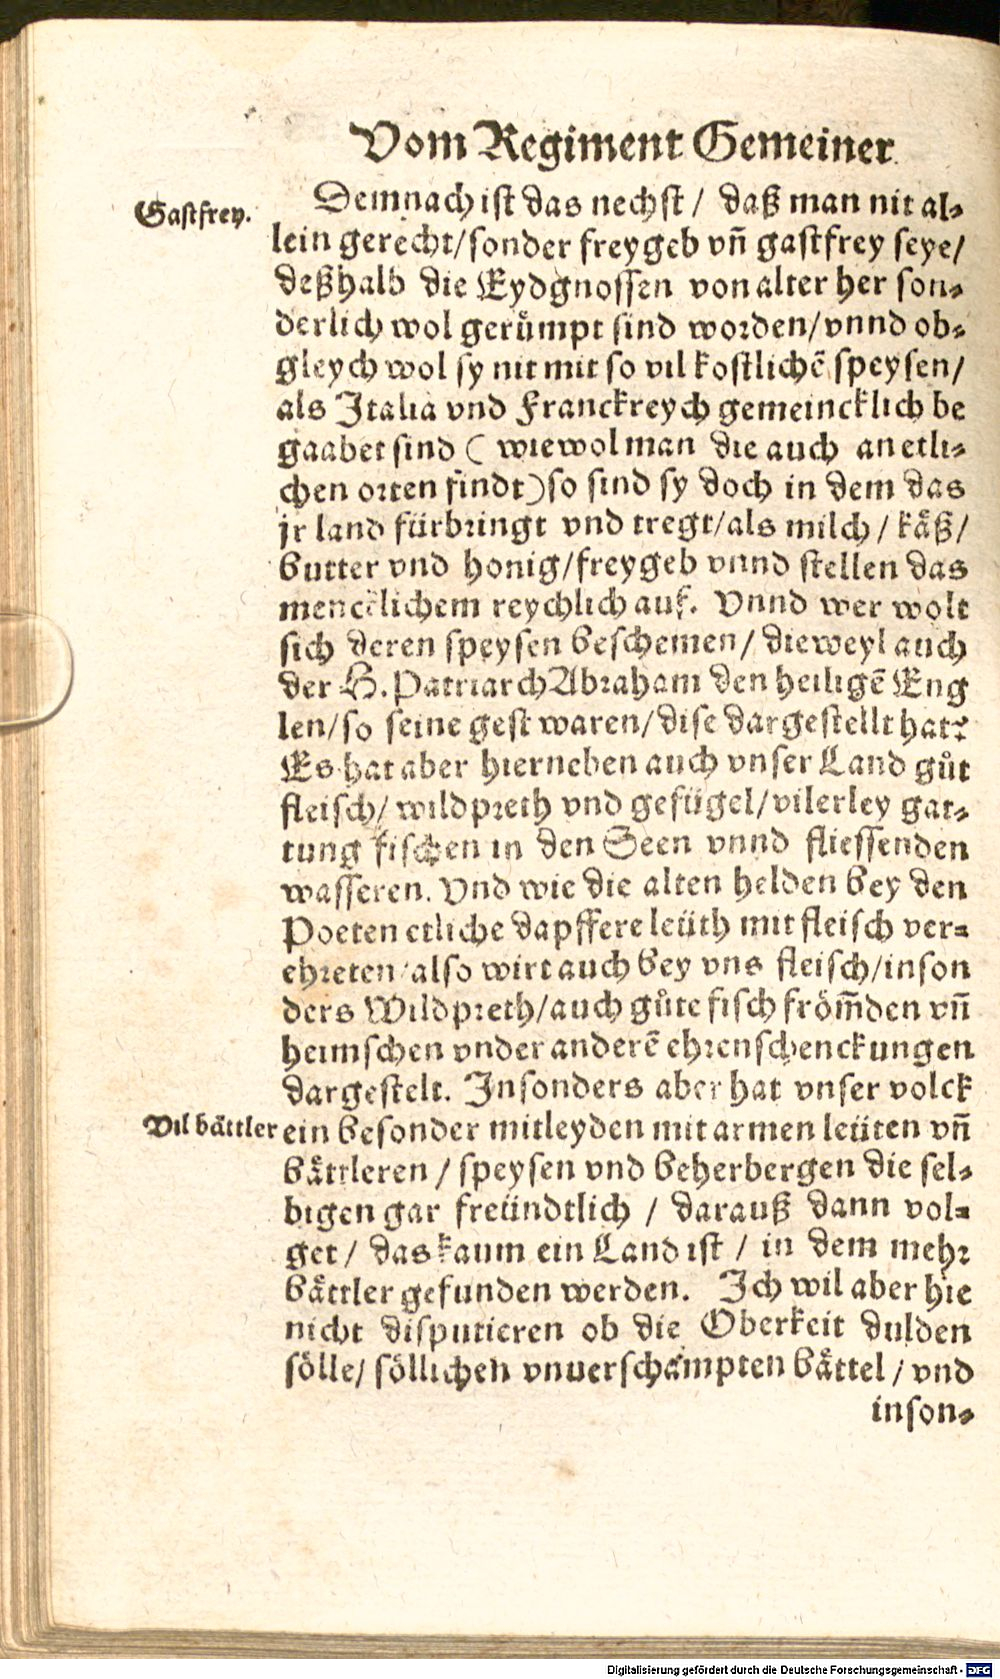 Vom Regiment Gemeiner
Gastfrey.
Demnach ist das nechst / daß man nit al-
lein gerecht/sonder freygeb vñ gastfrey seye/
deßhalb die Eydgnossen von alter her son-
derlich wol gerůmpt sind worden/vnnd ob-
gleych wol sy nit mit so vil kostlichē speysen/
als Italia vnd Franckreych gemeincklich be
gaabet sind ( wiewol man die auch an etli-
chen orten findt) so sind sy doch in dem das
jr land fürbringt vnd tregt/als milch / käß/
butter vnd honig/freygeb vnnd stellen das
mencklichem reychlich auf. Vnnd wer wolt
sich deren speysen beschemen / dieweyl auch
der H. Patriarch Abraham den heiligē Eng
len/so seine gest waren/dise dargestellt hat?
Es hat aber hierneben auch vnser Land gůt
fleisch/ wildpreth vnd gefügel/vilerley gat-
tung fischen in den Seen vnnd fliessenden
wasseren. Vnd wie die alten helden bey den
Poeten etliche dapffere leüth mit fleisch ver-
ehreten/also wirt auch bey vns fleisch/inson
ders Wildpreth/auch gůte fisch fröm̄den vñ
heimschen vnder anderē ehrenschenckungen
dargestelt. Insonders aber hat vnser volck
Vil bättler
ein besonder mitleyden mit armen leüten vñ
bättleren / speysen vnd beherbergen die sel-
bigen gar freündtlich / darauß dann vol-
get / das kaum ein Land ist / in dem mehr
bättler gefunden werden. Ich wil aber hie
nicht disputieren ob die Oberkeit dulden
sölle/ söllichen vnuerschampten bättel / vnd
inson-
Digitalisierung gefördert durch die Deutsche Forschungsgemeinschaft - DFG